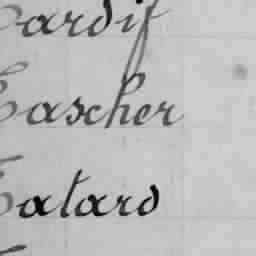 Tardif
Tascher
Tatard